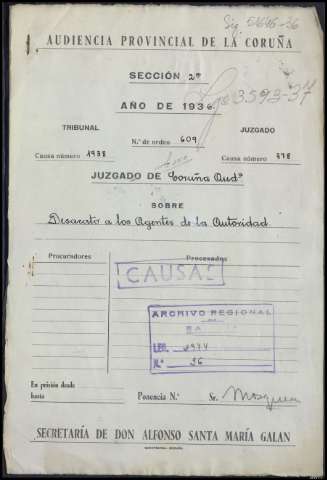 Sig 51646-36
AUDIENCIA PROVINCIAL DE LA CORUÑA
SECCIÓN 2ª
AÑO DE 1936
3593-37
TRIBUNAL JUZGADO
N.º de orden 609
Causa número 1938 Causa número 378
JUZGADO DE Coruña Audª
SOBRE
Desacato a los Agentes de la Autoridad
Procuradores Procesados
CAUSAS
ARCHIVO REGIONAL
LEG.
N.º 36
En prisión desde
hasta
Ponencia N.º Sr.
SECRETARÍA DE DON ALFONSO SANTA MARÍA GALAN